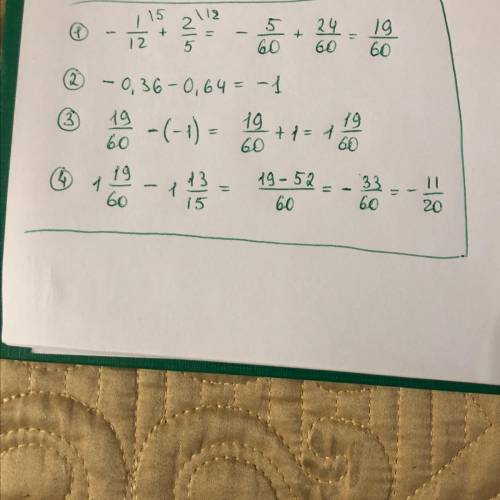 ① - 1/12 \5 + 2/5 \12 = - 5/60 + 24/60 = 19/60
② - 0,36 - 0,64 = -1
③ 19/60 - (-1) = 19/60 + 1 = 1 19/60
④ 1 19/60 - 1 13/15 = 19-52/60 = - 33/60 = - 11/20